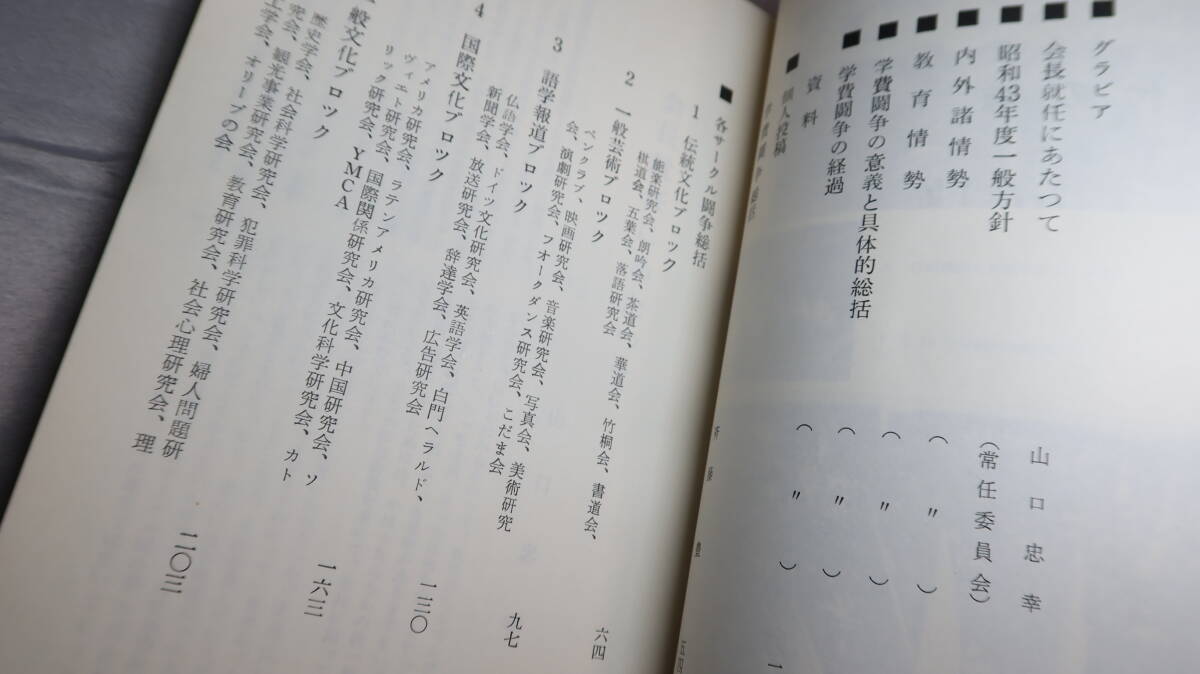 ■ グラビア
■ 会長就任にあたつて
山口忠幸
■ 昭和43年度一般方針
(常任委員会)
■ 内外諸情勢
( 〃 )
■ 教育情勢
( 〃 )
■ 学費闘争の意義と具体的総括
( 〃 )
■ 学費闘争の経過
( 〃 )
資料
■ 個人投稿
■ 各サークル闘争総括
1 伝統文化ブロック
能楽研究会、朗吟会、茶道会、華道会、竹桐会、書道会、
棋道会、五葉会、落語研究会
六四
2 一般芸術ブロック
ペンクラブ、映画研究会、音楽研究会、写真会、美術研究
会、演劇研究会、フオークダンス研究会、こだま会
九七
3 語学報道ブロック
仏語学会、ドイツ文化研究会、英語学会、白門ヘラルド、
新聞学会、放送研究会、辞達学会、広告研究会
一三〇
4 国際文化ブロック
アメリカ研究会、ラテンアメリカ研究会、中国研究会、ソ
ヴィエト研究会、国際関係研究会、文化科学研究会、カト
リック研究会、YMCA
一六三
般文化ブロック
歴史学会、社会科学研究会、犯罪科学研究会、婦人問題研
究会、観光事業研究会、教育研究会、社会心理研究会、理
工学会、オリーブの会
二〇三